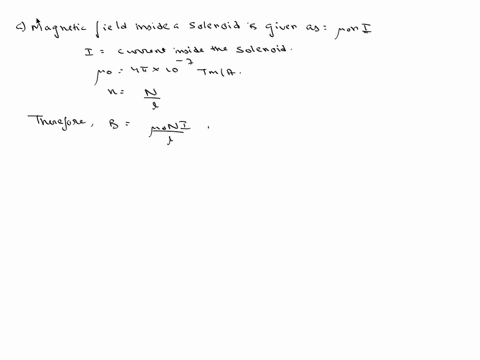 a) Magnetic field inside a solenoid is given as: μ0nI
I = current inside the solenoid.
μ0 = 4π × 10^-7 Tm/A.
n = N/l
Therefore, B = μ0NI/l .